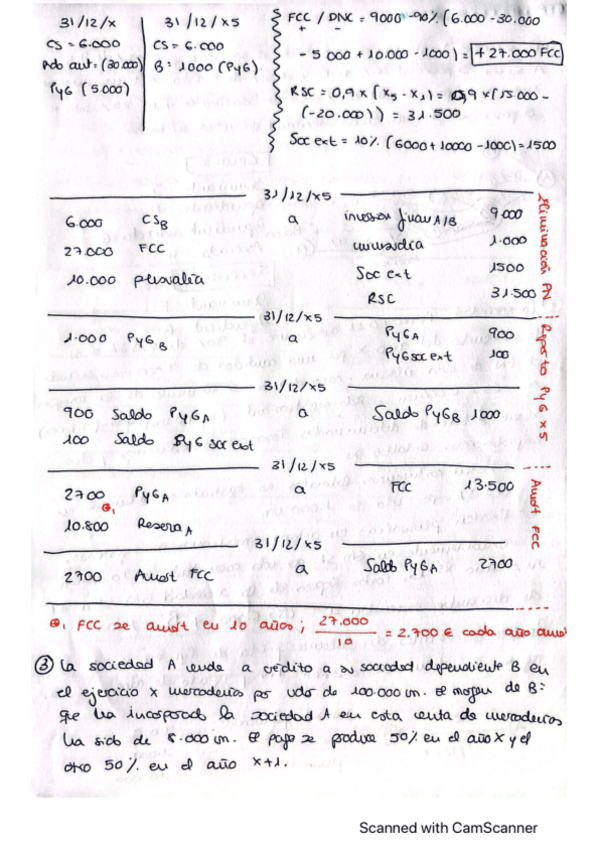 31/12/x
CS = 6.000
Rdo aut = (30.000)
PyG (5.000)
31/12/x5
CS = 6.000
B: 1000 (PyG).
FCC / DNC = 9000 - 90% (6.000 - 30.000
+ -
- 5 000 + 10.000 - 1000) = + 27.000 FCC
RSC = 0,9 x (x5 - x1) = 0,9 x (15.000 -
(-20.000)) = 31.500
Soc ext = 10% (6000 + 10000 - 1000) = 1500
31/12/x5
6.000 CSB a 9.000
27.000 FCC 1.000
10.000 plusvalía Soc ext 1500
RSC 31.500
Eliminación PN
31/12/x5
1.000 PyGB a PyGA 900
PyG soc ext 100
31/12/x5
900 Saldo PyGA a Saldo PyGB 1000
100 Saldo PyG soc ext
Reparto PyG x5
31/12/x5
2700 PyGA a FCC 13.500
10.800 ReservaA
31/12/x5
2700 Amort FCC a Saldo PyGA 2700
Amort FCC
1 FCC se amort en 10 años; 27.000 / 10 = 2.700 € cada año amort
③ La sociedad A vende a crédito a su sociedad dependiente B en
el ejercicio x mercaderías por vdo de 100.000 um. el margen de B:
que ha incorporado la sociedad A en esta venta de mercaderías
ha sido de 5.000 um. el pago se produce 50% en el año x y el
otro 50% en el año x+1.
Scanned with CamScanner